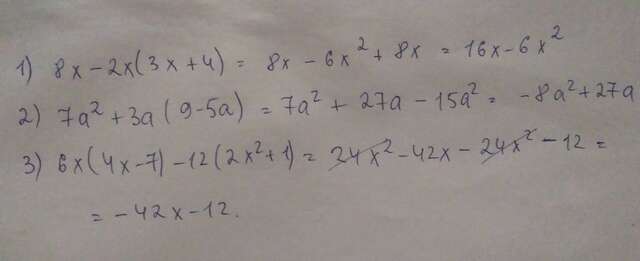 1) 8x - 2x(3x + 4) = 8x - 6x² + 8x = 16x - 6x²
2) 7a² + 3a (9 - 5a) = 7a² + 27a - 15a² = -8a² + 27a
3) 6x(4x - 7) - 12(2x² + 1) = 24x² - 42x - 24x² - 12 =
= -42x - 12.